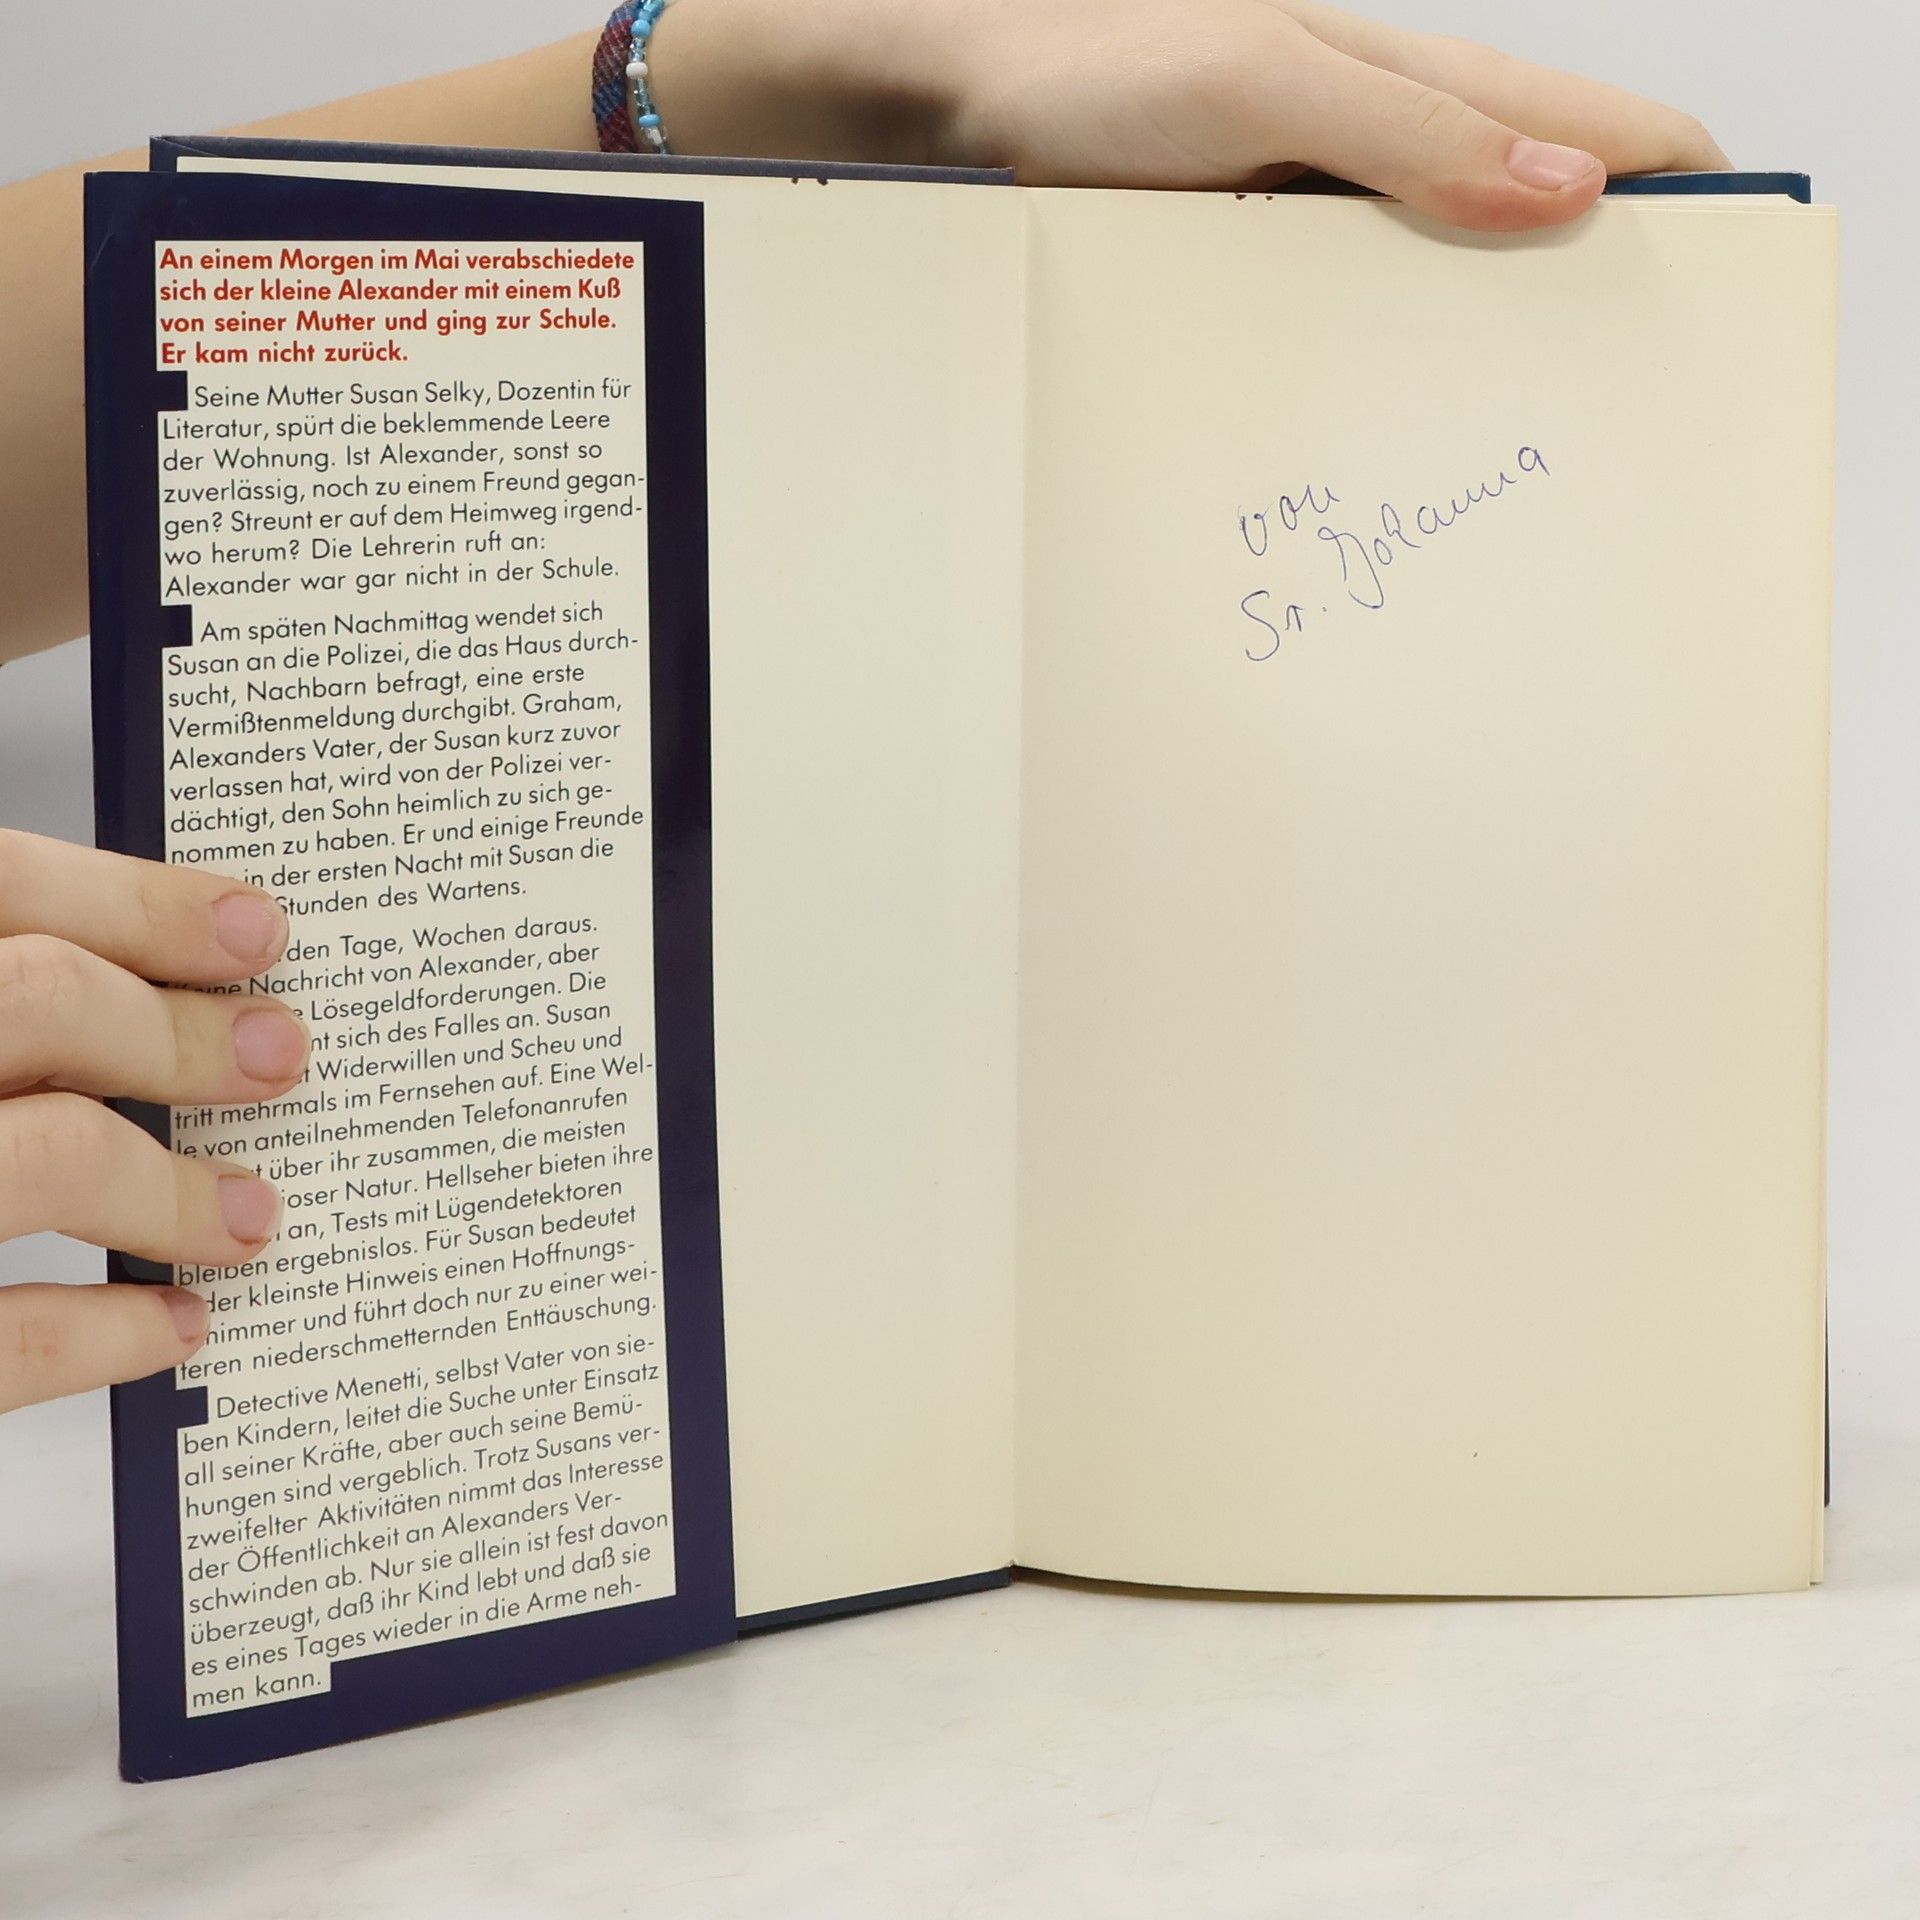 An einem Morgen im Mai verabschiedete
sich der kleine Alexander mit einem Kuß
von seiner Mutter und ging zur Schule.
Er kam nicht zurück.
Seine Mutter Susan Selky, Dozentin für
Literatur, spürt die beklemmende Leere
der Wohnung. Ist Alexander, sonst so
zuverlässig, noch zu einem Freund gegan-
gen? Streunt er auf dem Heimweg irgend-
wo herum? Die Lehrerin ruft an:
Alexander war gar nicht in der Schule.
Am späten Nachmittag wendet sich
Susan an die Polizei, die das Haus durch-
sucht, Nachbarn befragt, eine erste
Vermißtenmeldung durchgibt. Graham,
Alexanders Vater, der Susan kurz zuvor
verlassen hat, wird von der Polizei ver-
dächtigt, den Sohn heimlich zu sich ge-
nommen zu haben. Er und einige Freunde
in der ersten Nacht mit Susan die
Stunden des Wartens.
den Tage, Wochen daraus.
Nachricht von Alexander, aber
Lösegeldforderungen. Die
sich des Falles an. Susan
Widerwillen und Scheu und
tritt mehrmals im Fernsehen auf. Eine Wel-
le von anteilnehmenden Telefonanrufen
über ihr zusammen, die meisten
Natur. Hellseher bieten ihre
an, Tests mit Lügendetektoren
bleiben ergebnislos. Für Susan bedeutet
der kleinste Hinweis einen Hoffnungs-
himmer und führt doch nur zu einer wei-
teren niederschmetternden Enttäuschung.
Detective Menetti, selbst Vater von sie-
ben Kindern, leitet die Suche unter Einsatz
all seiner Kräfte, aber auch seine Bemü-
hungen sind vergeblich. Trotz Susans ver-
zweifelter Aktivitäten nimmt das Interesse
der Öffentlichkeit an Alexanders Ver-
schwinden ab. Nur sie allein ist fest davon
überzeugt, daß ihr Kind lebt und daß sie
es eines Tages wieder in die Arme neh-
men kann.
von
Sr. Johanna